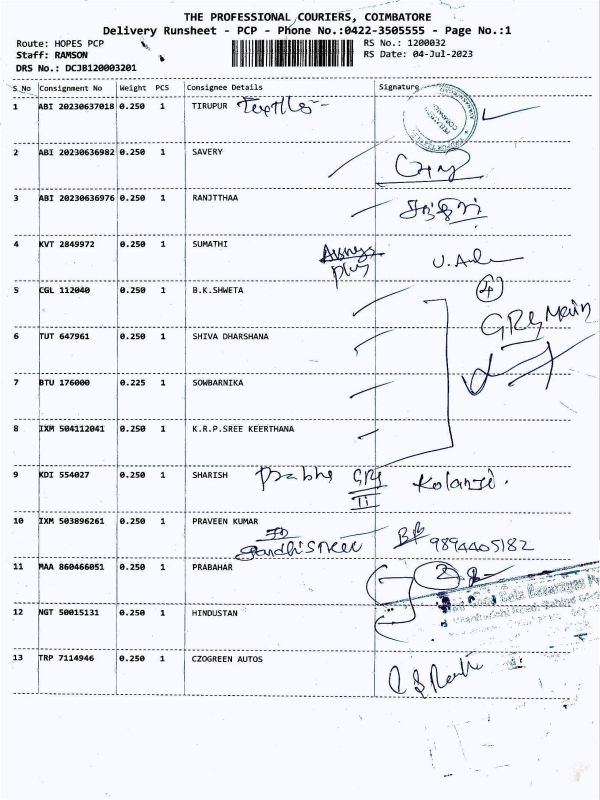 THE PROFESSIONAL COURIERS, COIMBATORE
Delivery Runsheet - PCP - Phone No.:0422-3505555 - Page No.:1
Route: HOPES PCP
RS No.: 1200032
Staff: RAMSON
RS Date: 04-Jul-2023
DRS No.: DCJB120003201
S_No Consignment No Weight PCS Consignee Details Signature
1 ABI 20230637018 0.250 1 TIRUPUR
2 ABI 20230636982 0.250 1 SAVERY
3 ABI 20230636976 0.250 1 RANJTTHAA
4 KVT 2849972 0.250 1 SUMATHI
plus
5 CGL 112040 0.250 1 B.K.SHWETA
4
GRG Main
6 TUT 647961 0.250 1 SHIVA DHARSHANA
7 BTU 176000 0.225 1 SOWBARNIKA
8 IXM 504112041 0.250 1 K.R.P.SREE KEERTHANA
9 KDI 554027 0.250 1 SHARISH Prabhu GRG Kolanji.
II
10 IXM 503896261 0.250 1 PRAVEEN KUMAR
9894405182
11 MAA 860466051 0.250 1 PRABAHAR 2
12 NGT 50015131 0.250 1 HINDUSTAN
13 TRP 7114946 0.250 1 CZOGREEN AUTOS